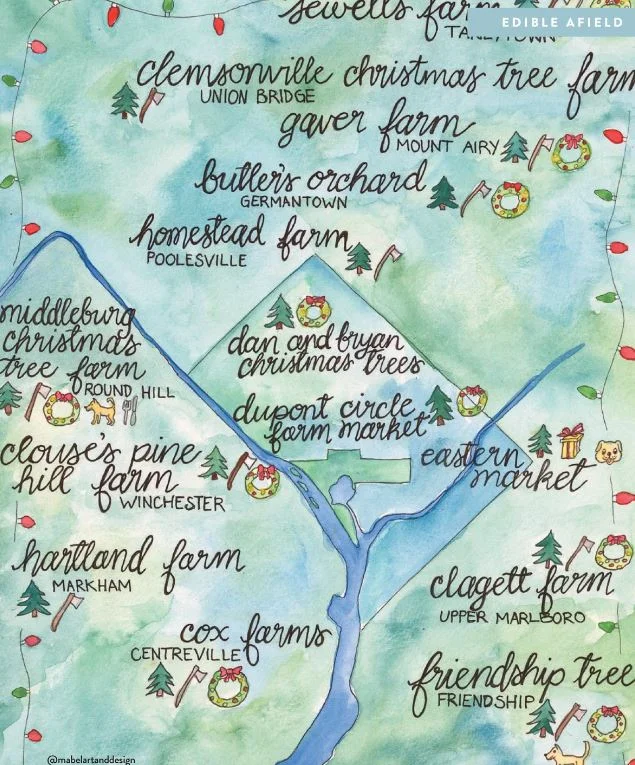 sewells farm
EDIBLE AFIELD
TANEYTOWN
clemsonville christmas tree farm
UNION BRIDGE
gaver farm
MOUNT AIRY
butler's orchard
GERMANTOWN
homestead farm
POOLESVILLE
middleburg
christmas
tree farm
ROUND HILL
dan and bryan
christmas trees
dupont circle
farm market
eastern
market
clouse's pine
hill farm
WINCHESTER
hartland farm
MARKHAM
clagett farm
UPPER MARLBORO
cox farms
CENTREVILLE
friendship tree
FRIENDSHIP
@mabelartanddesign